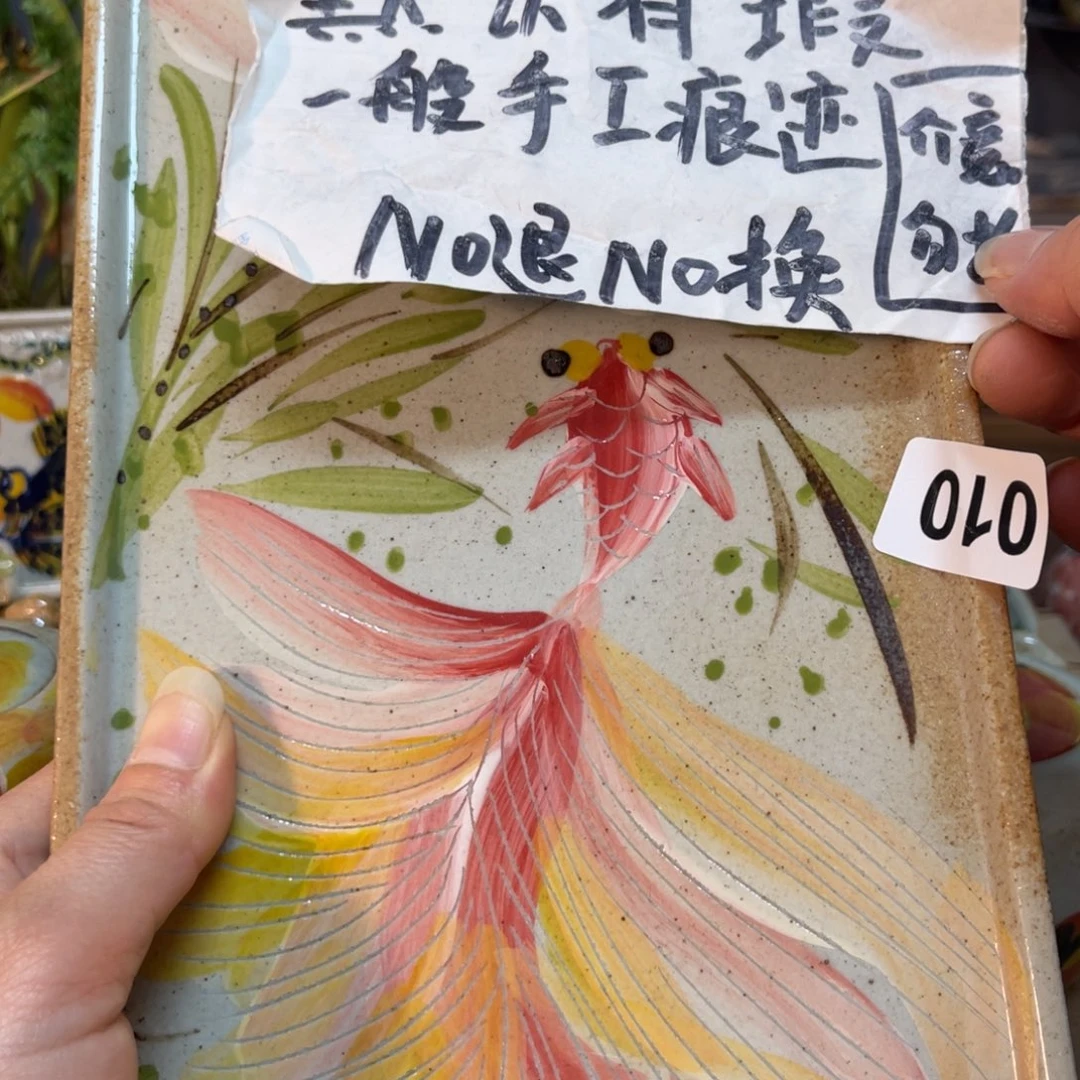 默认有瑕
一般手工痕迹
No退No换
介意
勿
010